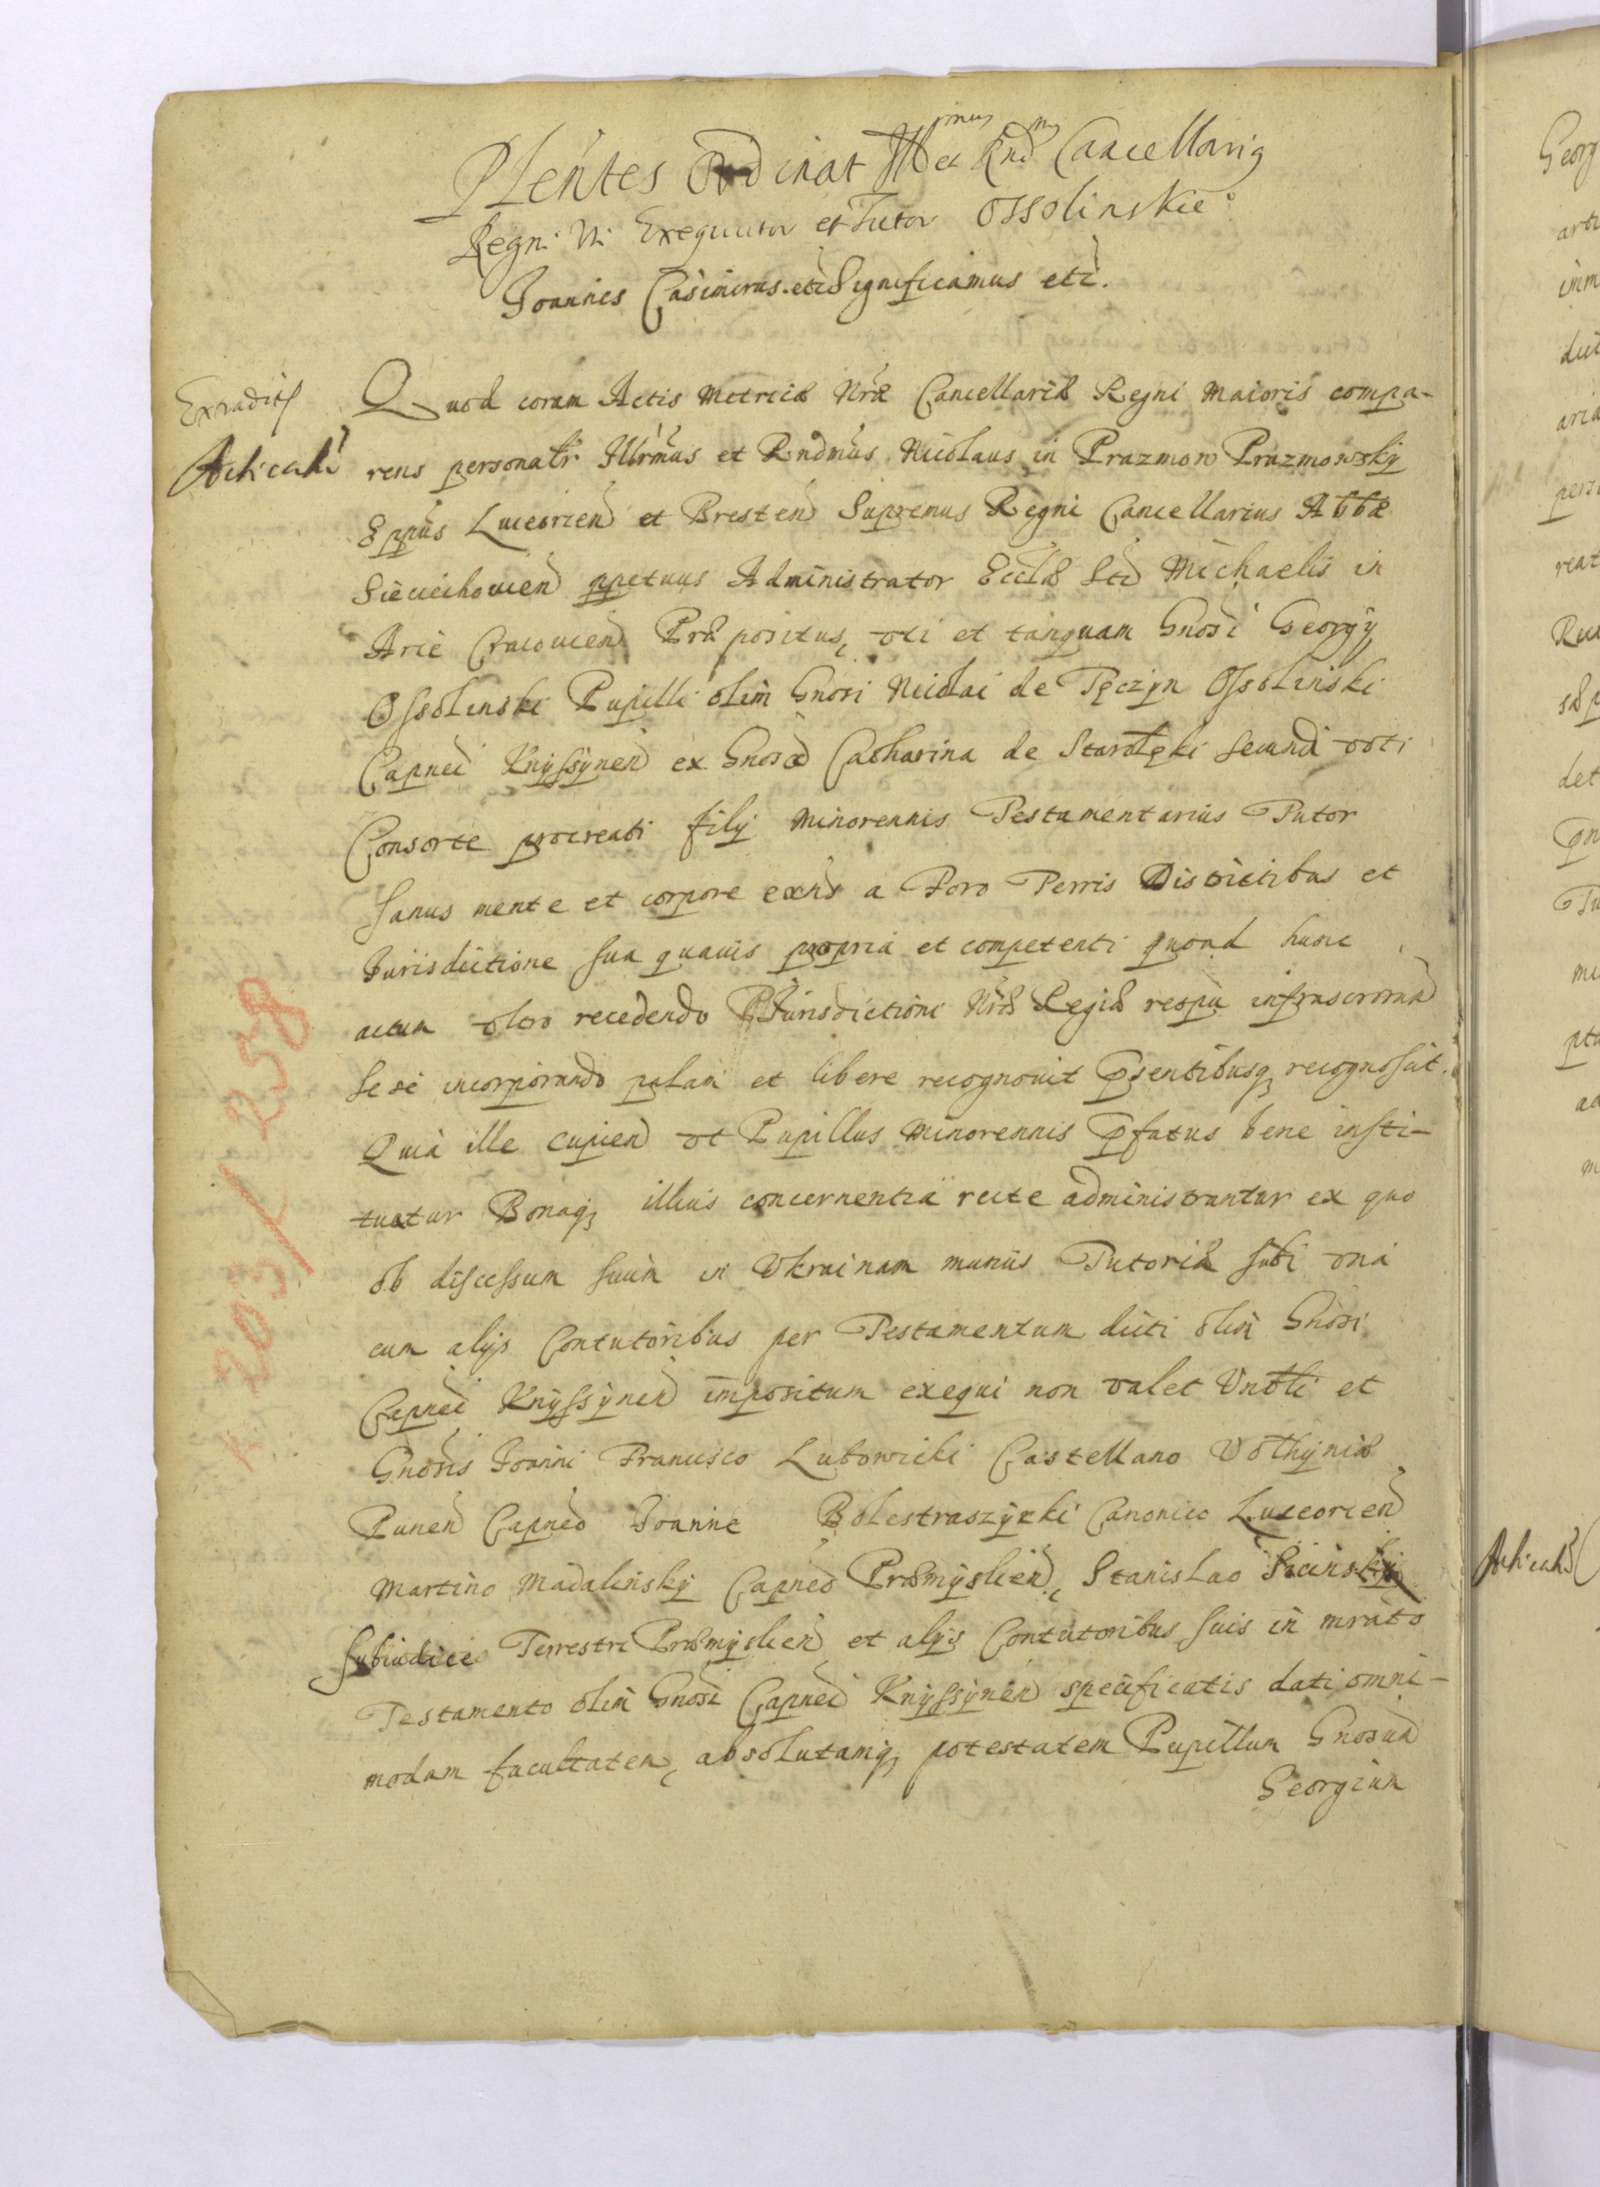 Plentes Ordinat Illmus et Rndms Cancellarig
Regni Uti Exequutor et Tutor Ossolinskie
Joannes Casimirus etc Significamus etc.
Extradit
Acticat
Quod coram Actis Metricæ Nræ Cancellariæ Regni Maioris compa-
rens personalr Illrmus et Rndmus Nicolaus in Prazmow Prazmowsky
Eppus Luceorien et Bresten Supremus Regni Cancellarius Abbæ
Sieciechovien ppetuus Administrator Ecclæ Sti Michaelis in
Arce Cracovien Præpositus, uti et tanquam Gnosi Georgy
Ossolinski Pupilli olim Gnosi Nicolai de Tęczyn Ossolinski
Capnei Knyssynen ex Gnosa Catharina de Starołęki secundi voti
Consorte procreati filij minorennis Testamentarius Tutor
Sanus mente et corpore exns a Foro Terris Districtibus et
Jurisdictione sua quavis propria et competenti quoad hunc
actum ultro recedendo Jurisdictioni Nræ Regiæ respu infrascrorum
sese incorporando palam et libere recognovit Psentibusq recognoscit.
Quia ille cupien ut Pupillus minorennis Pfatus bene insti-
tuatur Bonaq illius concernentia recte administrantur ex quo
ob discessum suum in Ukrainam munus Tutoriæ sibi una
cum alys Contutoribus per Testamentum dicti olim Gnosi
Capnei Knyssynen impositum exequi non valet Undli et
Gnosis Joanni Francisco Lubowicki Castellano Volhyniæ
Punen Capneo Joanne Bolestraszycki Canonico Luceorien
Martino Madalinsky Capneo Præmyslien, Stanislao Sicinsky
Subiudice Terrestri Præmyslien et alys Contutoribus suis in mrato
Testamento olim Gnosi Capnei Knyssynen specificatis dati omni-
modam facultatem, absolutamq potestatem Pupillum Gnosum
Georgium
k 203/ 258
Acticat